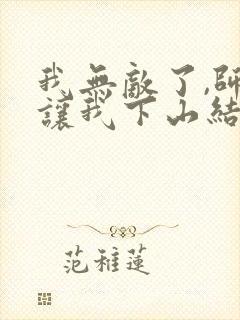 我無敵了,師
讓我下山結
范稚蓮